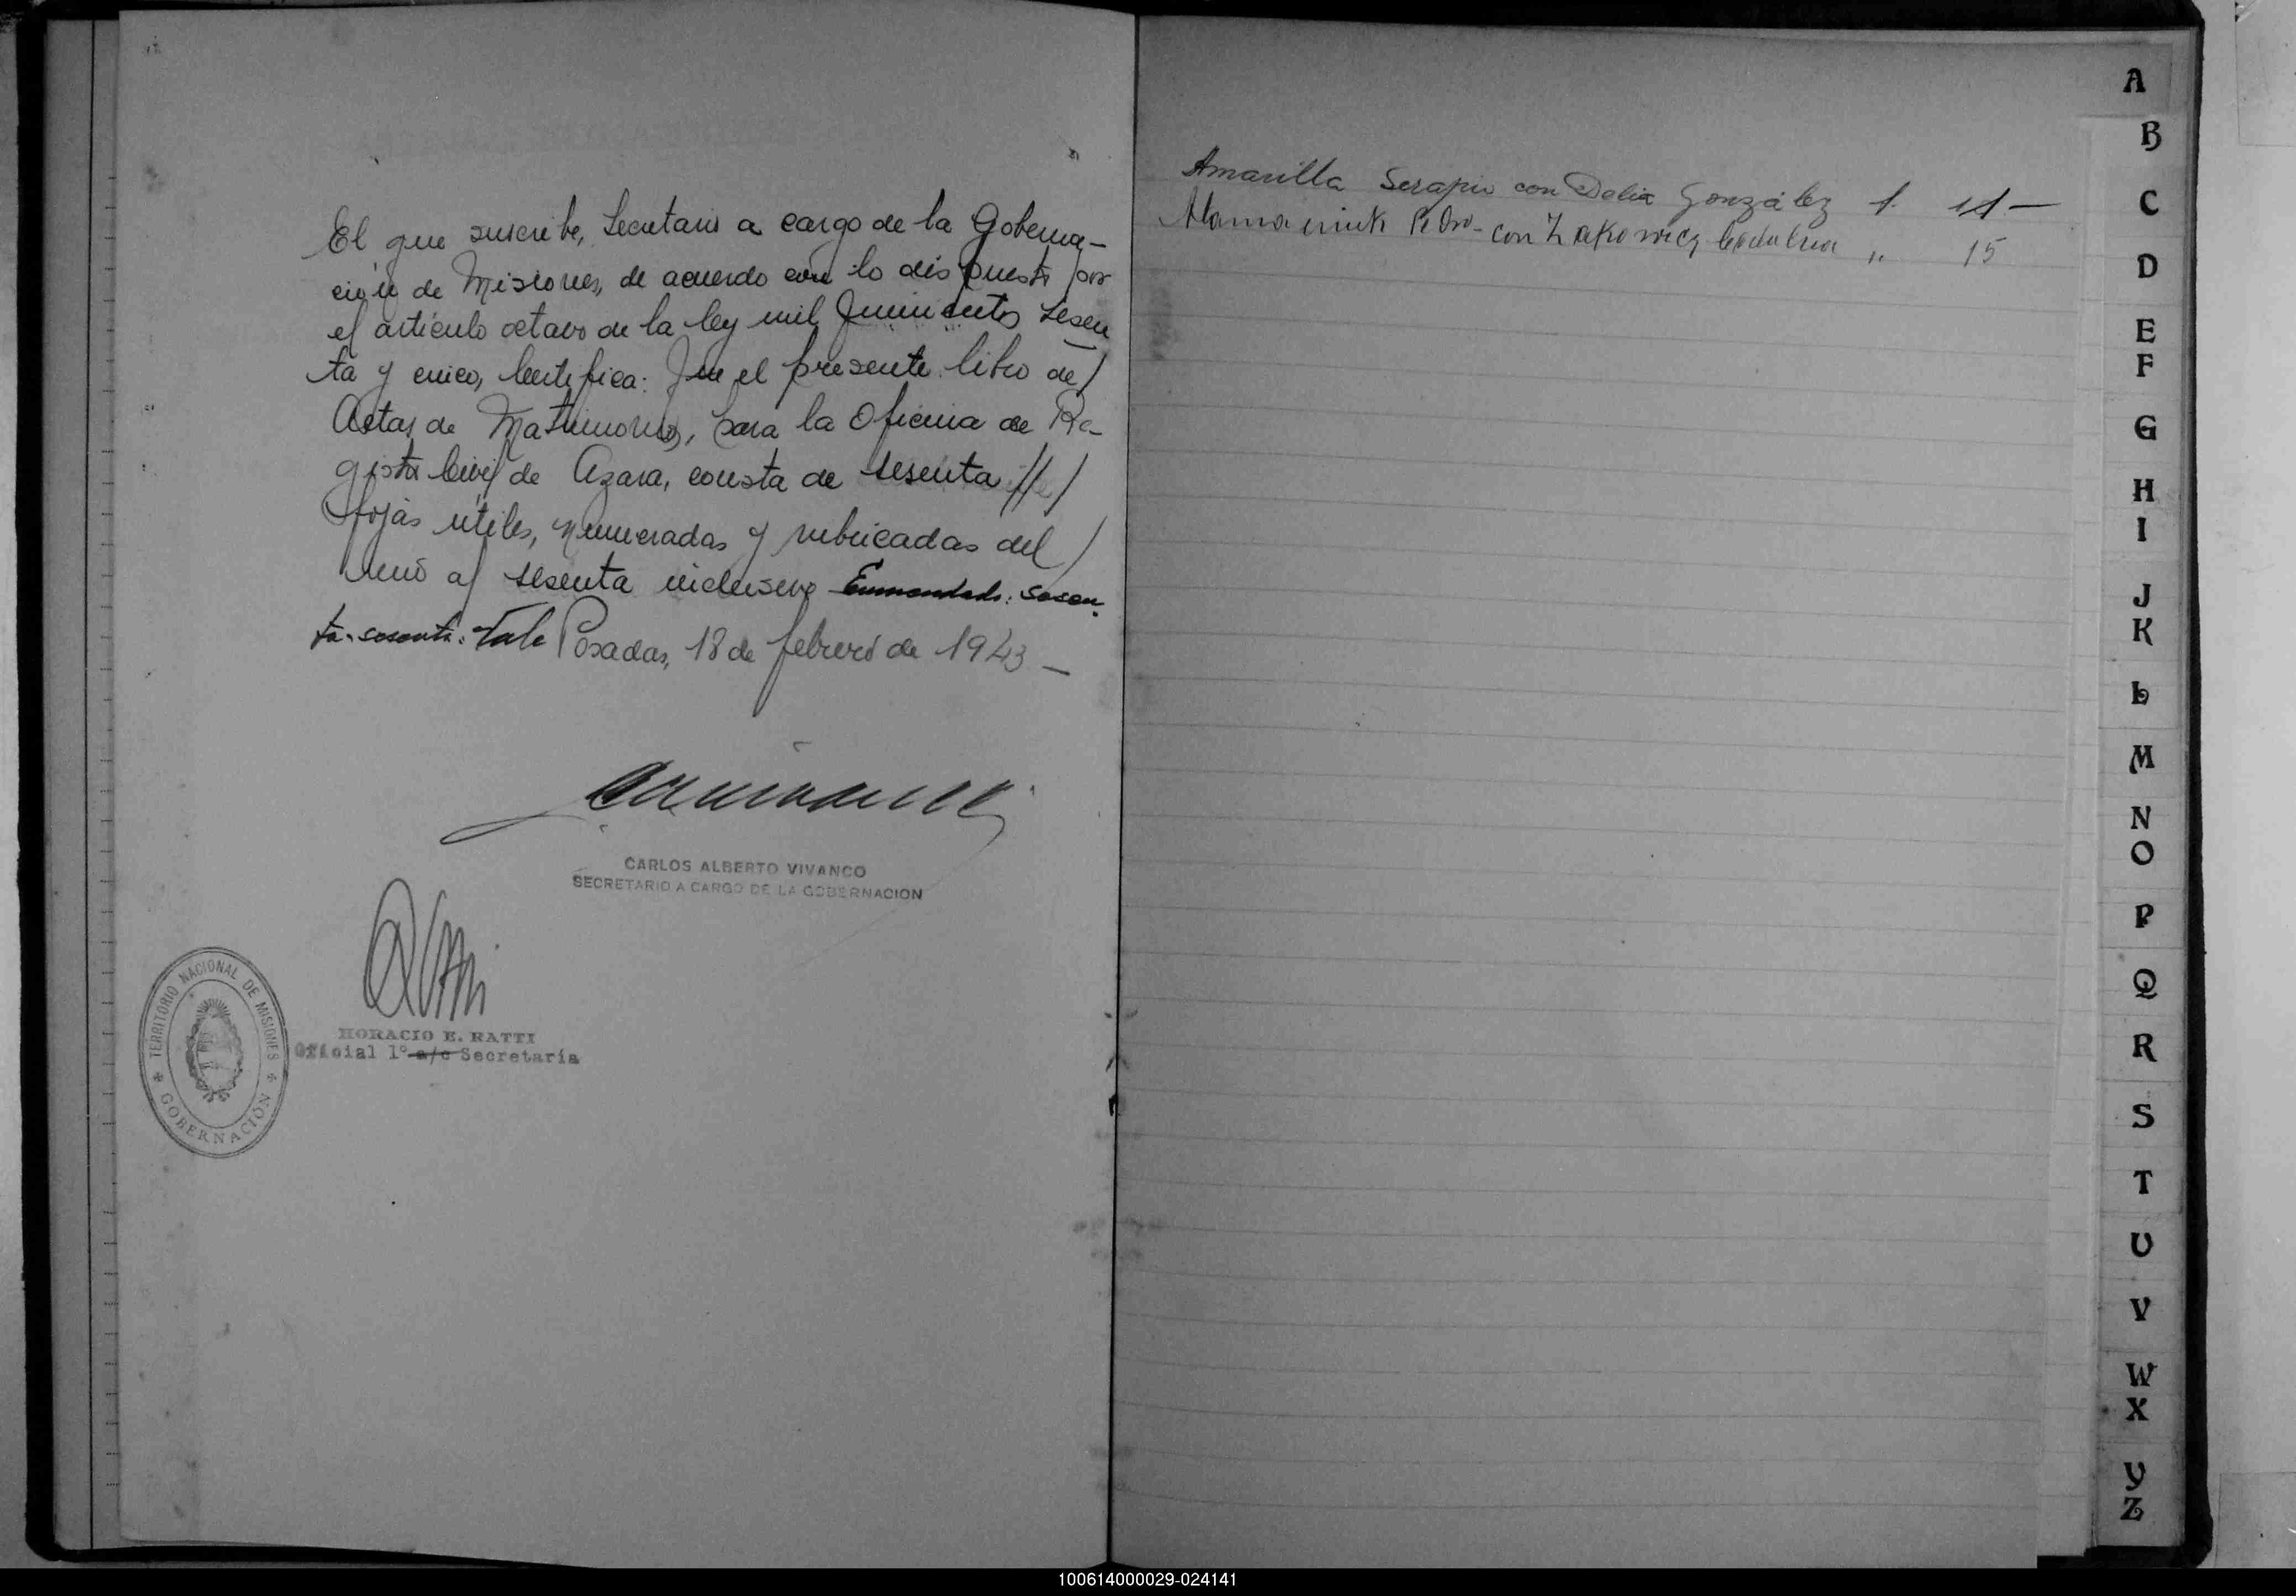 El que suscribe, Secretario a cargo de la Goberna-
ción de Misiones, de acuerdo con lo dispuesto por
el artículo octavo de la ley mil quinientos sesen
ta y cinco, Certifica: Que el presente libro de/
Actas de Matrimonios, para la Oficina de Re-
gistro Civil de Azara, consta de sesenta ///
fojas útiles, numeradas y rubricadas del /
uno al sesenta inclusive Enmendado: sesen-
ta-sesenta: Vale Posadas, 18 de febrero de 1943 —
CARLOS ALBERTO VIVANCO
SECRETARIO A CARGO DE LA GOBERNACION
HORACIO E. RATTI
Oficial 1º a/c Secretaría
TERRITORIO NACIONAL DE MISIONES
GOBERNACIÓN
Amarilla Serapio con Delia González 1. 11 —
Pedro - con Zakowicz " 15
A
B
C
D
E
F
G
H
I
J
K
L
M
N
O
P
Q
R
S
T
U
V
W
X
Y
Z
100614000029-024141